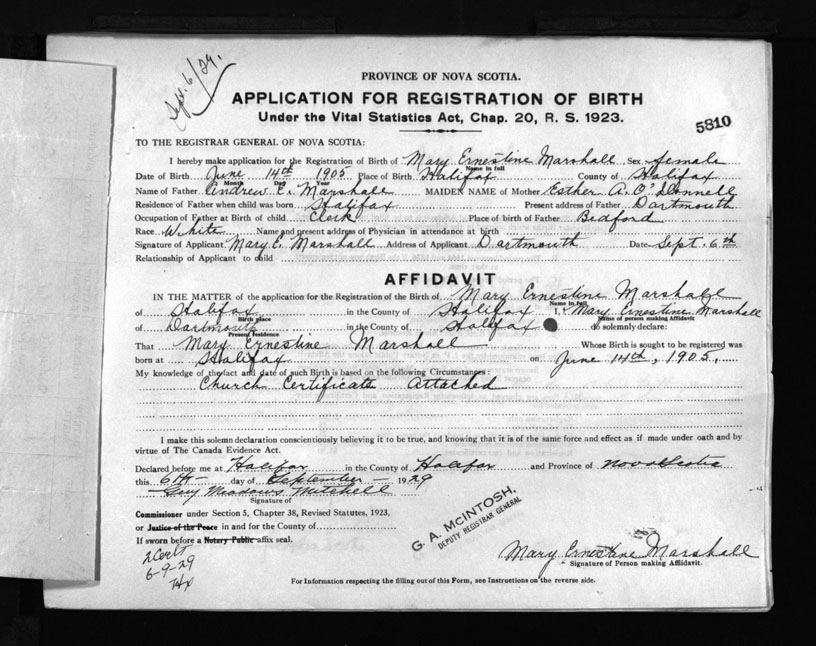 Sept. 6/29.
PROVINCE OF NOVA SCOTIA.
APPLICATION FOR REGISTRATION OF BIRTH
Under the Vital Statistics Act, Chap. 20, R. S. 1923.
5810
TO THE REGISTRAR GENERAL OF NOVA SCOTIA:
I hereby make application for the Registration of Birth of Mary Ernestine Marshall Sex female
Name in full
Date of Birth June 14th 1905 Place of Birth Halifax County of Halifax
Month Day Year
Name of Father Andrew E. Marshall MAIDEN NAME of Mother Esther A. O'Donnell
Residence of Father when child was born Halifax Present address of Father Dartmouth
Occupation of Father at Birth of child Clerk Place of birth of Father Bedford
Race White Name and present address of Physician in attendance at birth
Signature of Applicant Mary E. Marshall Address of Applicant Dartmouth Date Sept. 6th
Relationship of Applicant to child
AFFIDAVIT
IN THE MATTER of the application for the Registration of the Birth of Mary Ernestine Marshall
Name in full
of Halifax in the County of Halifax I, Mary Ernestine Marshall
Birth place Name of person making Affidavit
of Dartmouth in the County of Halifax do solemnly declare:
Present residence
That Mary Ernestine Marshall Whose Birth is sought to be registered was
born at Halifax on June 14th, 1905.
My knowledge of the fact and date of such Birth is based on the following Circumstances:
Church Certificate Attached
I make this solemn declaration conscientiously believing it to be true, and knowing that it is of the same force and effect as if made under oath and by
virtue of The Canada Evidence Act.
Declared before me at Halifax in the County of Halifax and Province of Nova Scotia
this 6th day of September 1929
Meadows Mitchell
Signature of
Commissioner under Section 5, Chapter 38, Revised Statutes, 1923,
or Justice of the Peace in and for the County of
If sworn before a Notary Public affix seal.
G. A. McINTOSH,
DEPUTY REGISTRAR GENERAL
2 Certs
6-9-29
Hx
Mary Ernestine Marshall
Signature of Person making Affidavit.
For Information respecting the filling out of this Form, see Instructions on the reverse side.